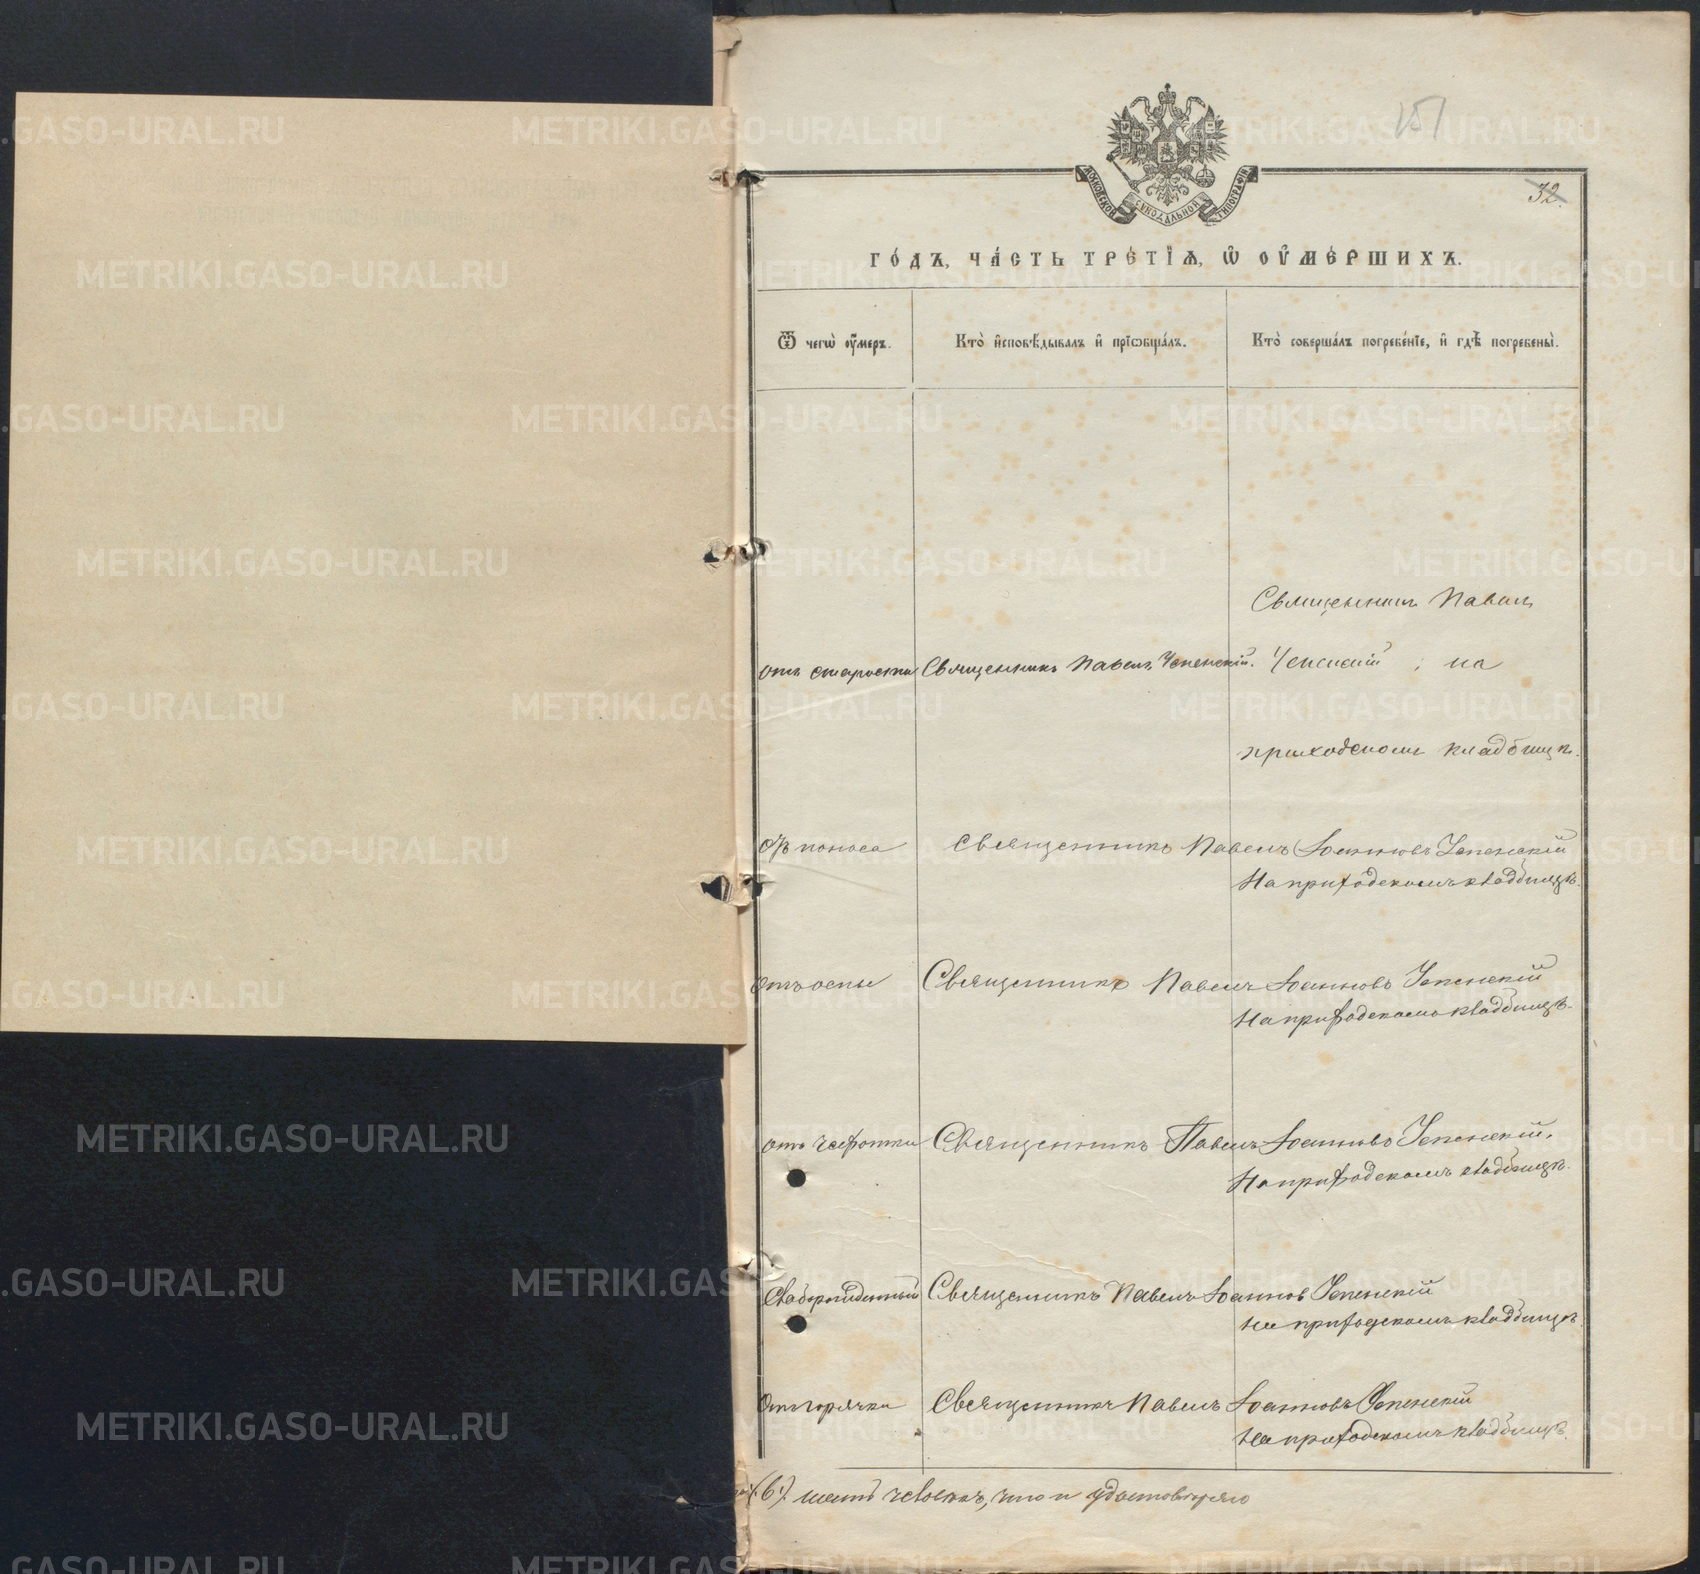 151
32
МОСКОВСКОЙ СѴНОДАЛЬНОЙ ТИПОГРАФІИ
ГО́ДЪ, ЧА́СТЬ ТРЕ́ТІѦ, Ѡ҆ ОУ҆МЕ́РШИХЪ.
Ѿ чегѡ̀ оу҆́меръ.
Кто̀ и҆сповѣ́дывалъ и҆ прїѡбща́лъ.
Кто̀ соверша́лъ погребе́нїе, и҆ гдѣ̀ погребены̀.
Священникъ Павелъ
отъ старости Священникъ Павелъ Успенскій. Успенскій, на
приходскомъ кладбищѣ.
отъ поноса Священникъ Павелъ Іоанновъ Успенскій
На приходскомъ кладбищѣ.
отъ оспы Священникъ Павелъ Іоанновъ Успенскій
На приходскомъ кладбищѣ.
отъ чахотки Священникъ Павелъ Іоанновъ Успенскій.
На приходскомъ кладбищѣ.
Слаборожденный Священникъ Павелъ Іоаннов Успенскій
на приходскомъ кладбищѣ.
отъ горячки Священникъ Павелъ Іоанновъ Успенскій
на приходскомъ кладбищѣ.
(6) шесть человѣкъ, что и удостовѣряю
METRIKI.GASO-URAL.RU